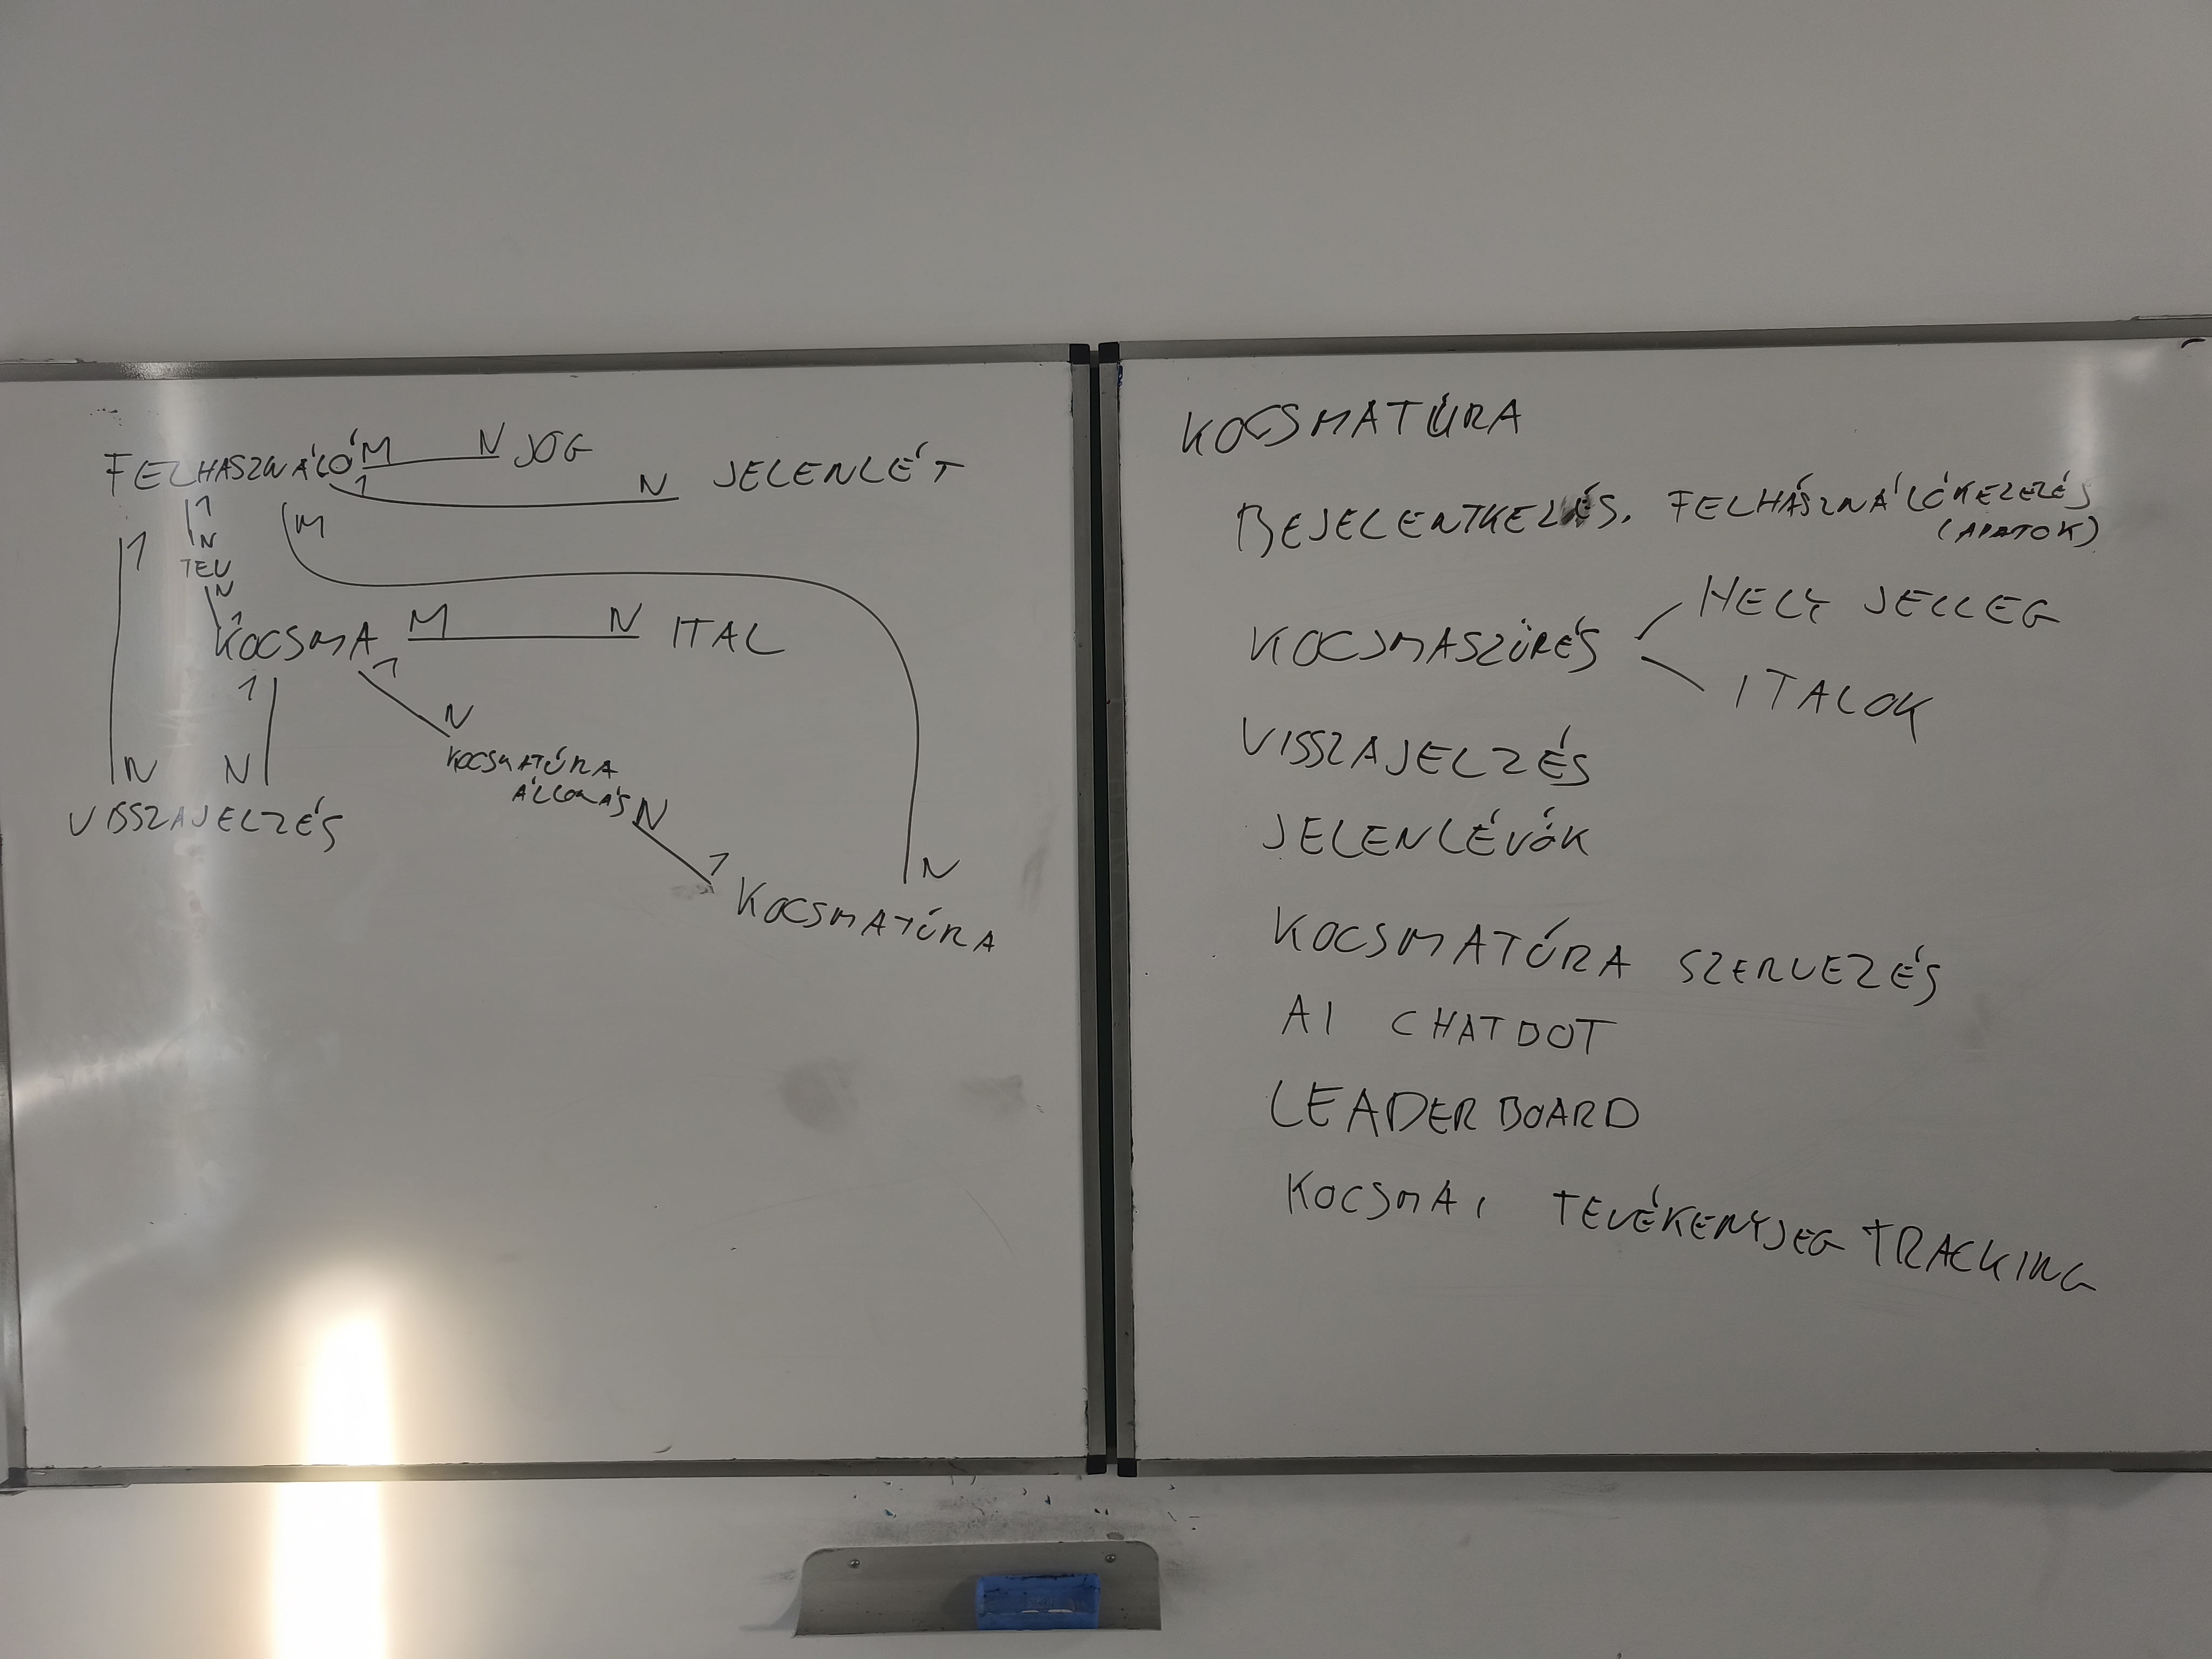 FELHASZNÁLÓ M N JOG
1 N JELENLÉT
1 M
1 N
TEV
N
1
KOCSMA M N ITAL
1 1
N
N N KOCSMATÚRA
ÁLLOMÁS N
VISSZAJELZÉS
1 N
KOCSMATÚRA
KOCSMATÚRA
BEJELENTKEZÉS, FELHASZNÁLÓKEZELÉS
(ADATOK)
KOCSMASZŰRÉS HELY JELLEG
ITALOK
VISSZAJELZÉS
JELENLÉVŐK
KOCSMATÚRA SZERVEZÉS
AI CHATBOT
LEADERBOARD
KOCSMAI TEVÉKENYSÉG TRACKING